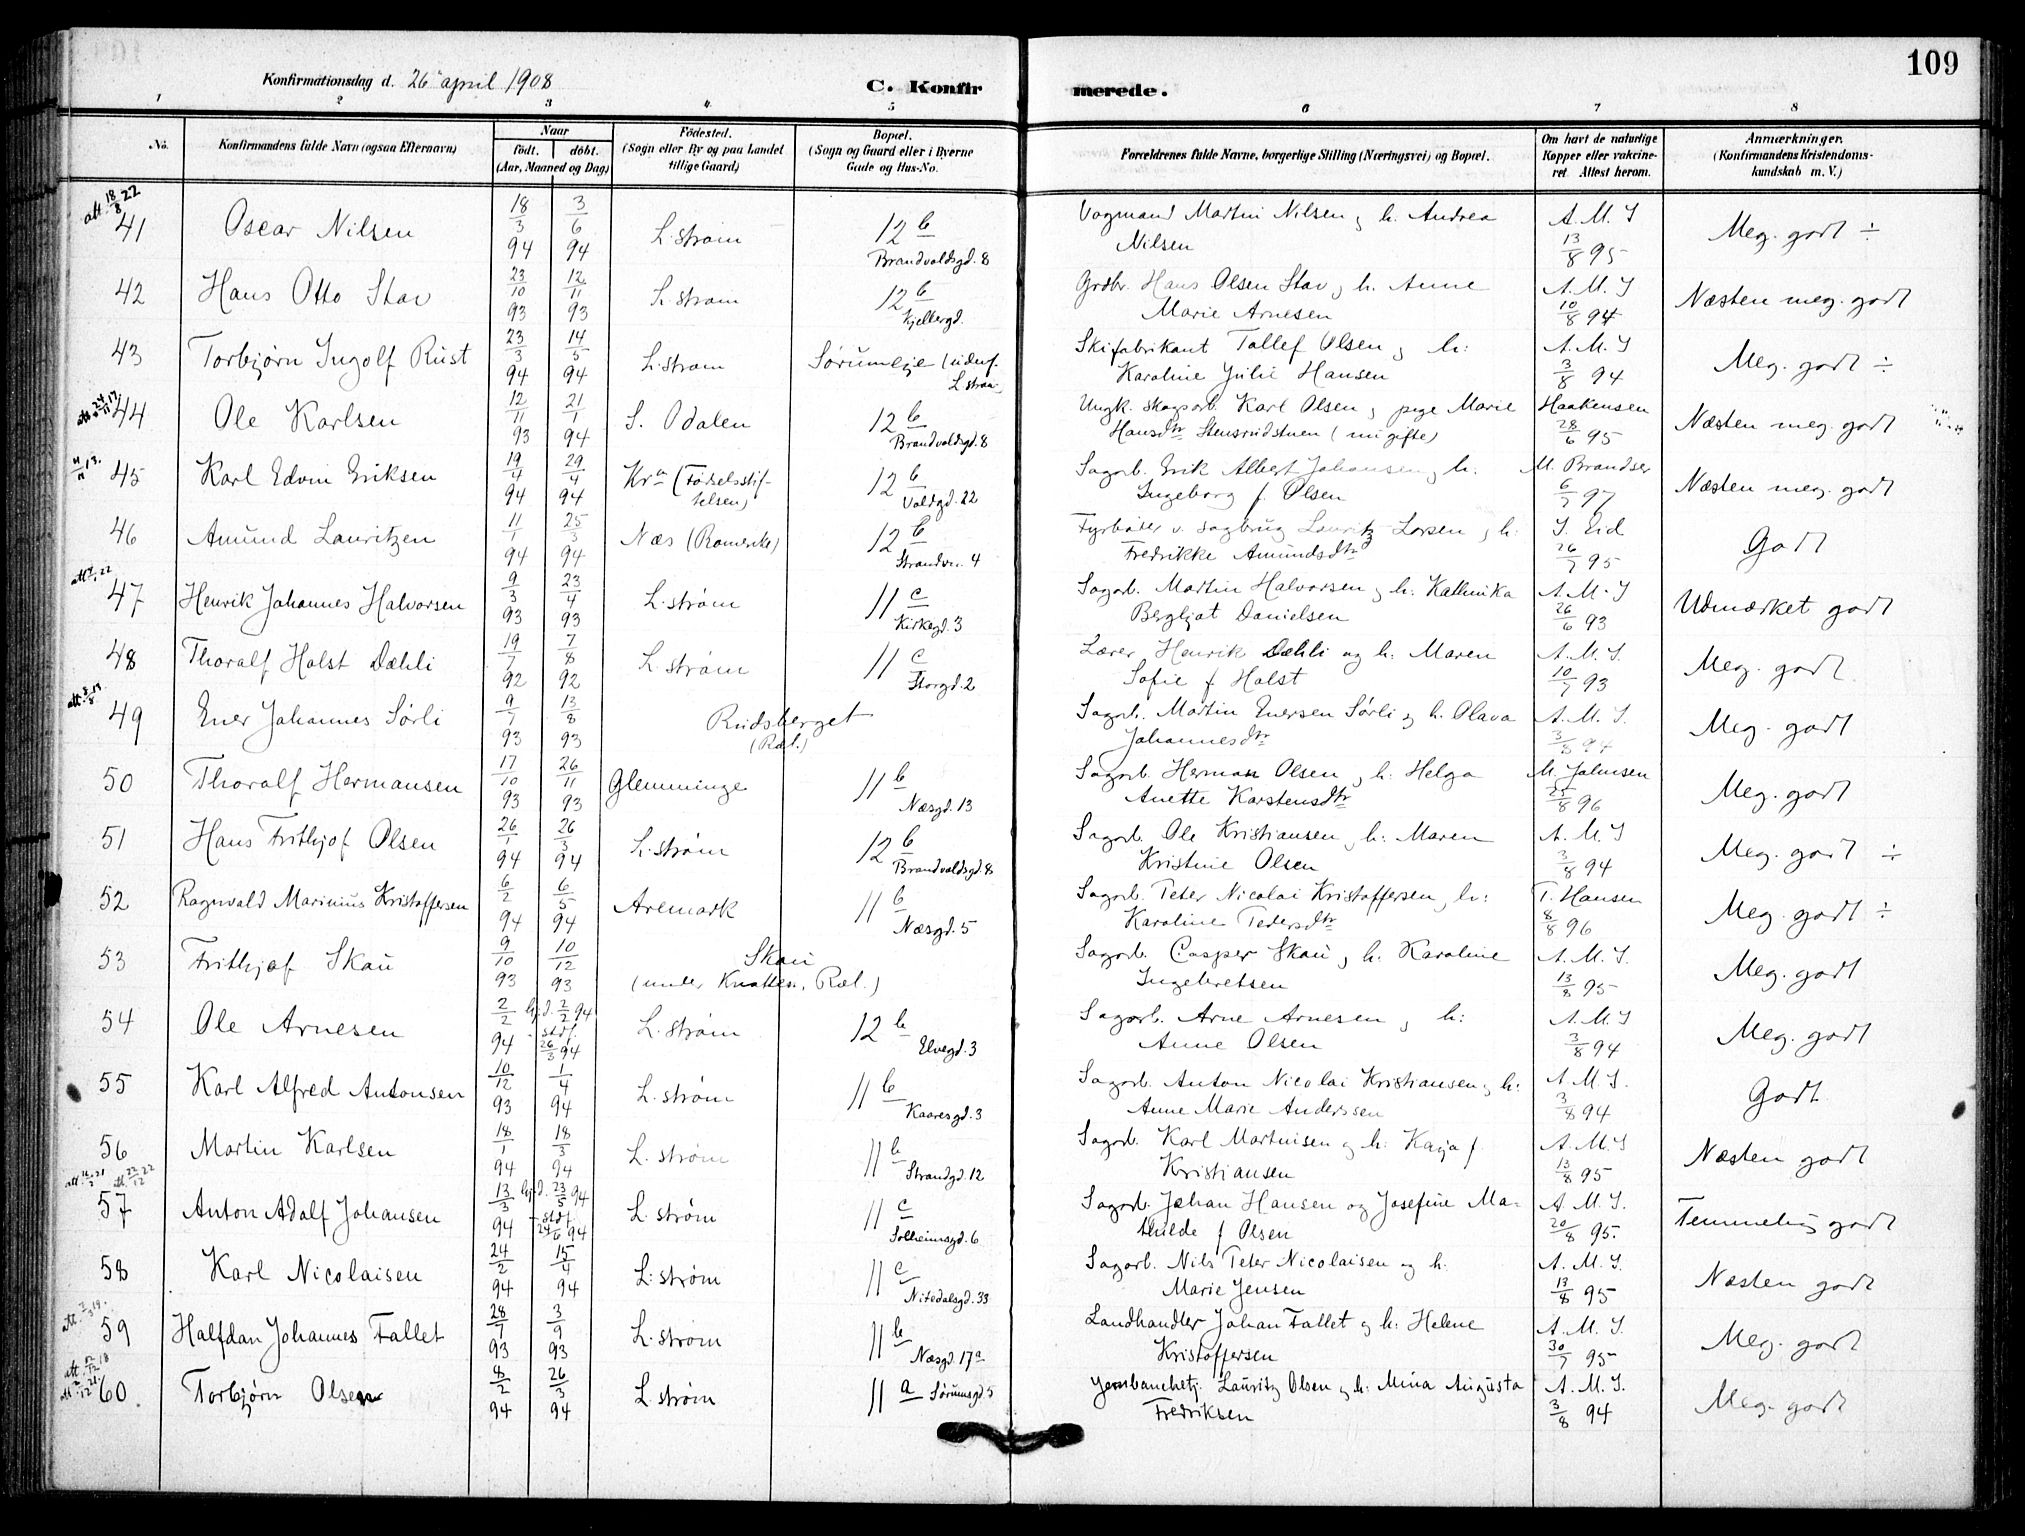 109
Konfirmationsdag d. 26 april 1908
C. Konfirmerede.
1 2 3 4 5 6 7 8
No.
Konfirmandens fulde Navn (ogsaa Efternavn)
Naar
født. døbt.
(Aar, Maaned og Dag)
Fødested.
(Sogn eller By og paa Landet
tillige Gaard)
Bopæl.
(Sogn og Gaard eller i Byerne
Gade og Hus-No.
Forældrenes fulde Navne, borgerlige Stilling (Næringsvei) og Bopæl.
Om havt de naturlige
Kopper eller vakcine-
ret. Attest herom.
Anmærkninger.
(Konfirmandens Kristendoms-
kundskab m. V.)
att. 18/8 22
41 Oscar Nilsen 18/3 94 3/6 94 L.strøm 12 b Brandvoldsgd. 8 Vogmand Martin Nilsen og h. Andrea A. M. S
Nilsen 13/8 95 Meg. godt ÷
42 Hans Otto Stav 23/10 93 12/11 93 L.strøm 12 b Kjellergd. Grdbr. Hans Olsen Stav og h. Anne A. M. S
Marie Arnesen 10/8 94 Næsten meg. godt
43 Torbjørn Ingolf Rust 23/3 94 14/5 94 L.strøm Sørumeje (udenf. L.strøm) Skifabrikant Tollef Olsen og h: A. M. S
Karoline Julie Hansen 3/8 94 Meg. godt ÷
44 Ole Karlsen 12/11 93 21/1 94 S. Odalen 12 b Brandvoldsgd. 8 Ungk. skogsarb. Karl Olsen og pige Marie Haakensen
Hansdtr Stensrudstuen (nu gifte) 28/6 95 Næsten meg. godt
45 Karl Edvin Eriksen 19/4 94 29/4 94 Kr.a (Fødselsstiftelsen) 12 b Voldgd. 22 Sagarb. Erik Albert Johansen og h. M. Brandser
Ingeborg f. Olsen 6/7 97 Næsten meg. godt
46 Amund Lauritzen 11/1 94 25/3 94 Næs (Romerike) 12 b Strandv. 4 Fyrbøter v. sagbrug Lauritz Larsen og h: S. Eid
Fredrikke Amundsdtr 26/7 95 Godt
47 Henrik Johannes Halvorsen 9/3 93 23/4 93 L.strøm 11 c Kirkegd. 3 Sagarb. Martin Halvorsen og h. Kathinka A. M. S
Bergljot Danielsen 26/6 93 Udmærket godt
48 Thoralf Holst Dæhli 19/7 92 7/8 92 L.strøm 11 c Storgd. 2 Lærer Henrik Dæhli og h: Maren A. M. S.
Sofie f. Holst 10/7 93 Meg. godt
49 Ener Johannes Sørli 9/7 93 13/8 93 Rudsberget (Ræl.) Sagarb. Martin Enersen Sørli og h. Olava A. M. S.
Johannesdtr 3/8 94 Meg. godt
50 Thoralf Hermansen 17/10 93 26/11 93 Glemminge 11 b Næsgd. 13 Sagarb. Herman Olsen og h. Helga M. Johnsen
Anette Karstensdtr 25/8 96 Meg. godt
51 Hans Frithjof Olsen 26/1 94 26/3 94 L.strøm 12 b Brandvoldsgd. 8 Sagarb. Ole Kristiansen og h: Maren A. M. S
Kristine Olsen 3/8 94 Meg. godt ÷
52 Ragnvald Marinius Kristoffersen 6/2 94 6/5 94 Aremark 11 b Næsgd. 5 Sagarb. Peter Nicolai Kristoffersen og h: T. Hansen
Karoline Pedersdtr 8/8 96 Meg. godt ÷
53 Frithjof Skau 9/10 93 10/12 93 Skau (under Knatten, Ræl.) Sagarb. Casper Skau og h. Karoline A. M. S.
Ingebretsen 13/8 95 Meg. godt
54 Ole Arnesen 2/2 94 hj.d. 2/2 94 stdf. 26/3 94 L.strøm 12 b Elvegd. 3 Sagarb. Arne Arnesen og h: A. M. S
Anne Olsen 3/8 94 Meg. godt
55 Karl Alfred Antonsen 10/12 93 1/4 94 L.strøm 11 b Kaaresgd. 3 Sagarb. Anton Nicolai Kristiansen og h: A. M. S.
Anne Marie Anderssen 3/8 94 Godt
56 Martin Karlsen 18/1 94 18/3 94 L.strøm 11 b Strandgd. 12 Sagarb. Karl Martinisen og h: Kaja f. A. M. S
Kristiansen 13/8 95 Næsten godt
57 Anton Adolf Johansen 13/3 94 hj.d. 23/5 94 stdf. 24/6 94 L.strøm 11 c Solheimsgd. 6 Sagarb. Johan Hansen og Josefine Ma- A. M. S.
thilde f. Olsen 20/8 95. Temmelig godt
58 Karl Nicolaisen 24/2 94 15/4 94 L.strøm 11 c Nitedalsgd. 33 Sagarb. Nils Peter Nicolaisen og h. A. M. S.
Marie Jensen 13/8 95 Næsten godt
59 Halfdan Johannes Fallet 28/7 93 3/9 93 L.strøm 11 b Næsgd. 17a Landhandler Johan Fallet og h: Helene A. M. S.
Kristoffersen 30/7 95 Meg. godt
60 Torbjørn Olsen 8/2 94 26/3 94 L.strøm 11 a Sørumsgd. 5 Jernbanebetj. Lauritz Olsen og h: Mina Augusta A. M. S.
Fredriksen 3/8 94 Meg. godt